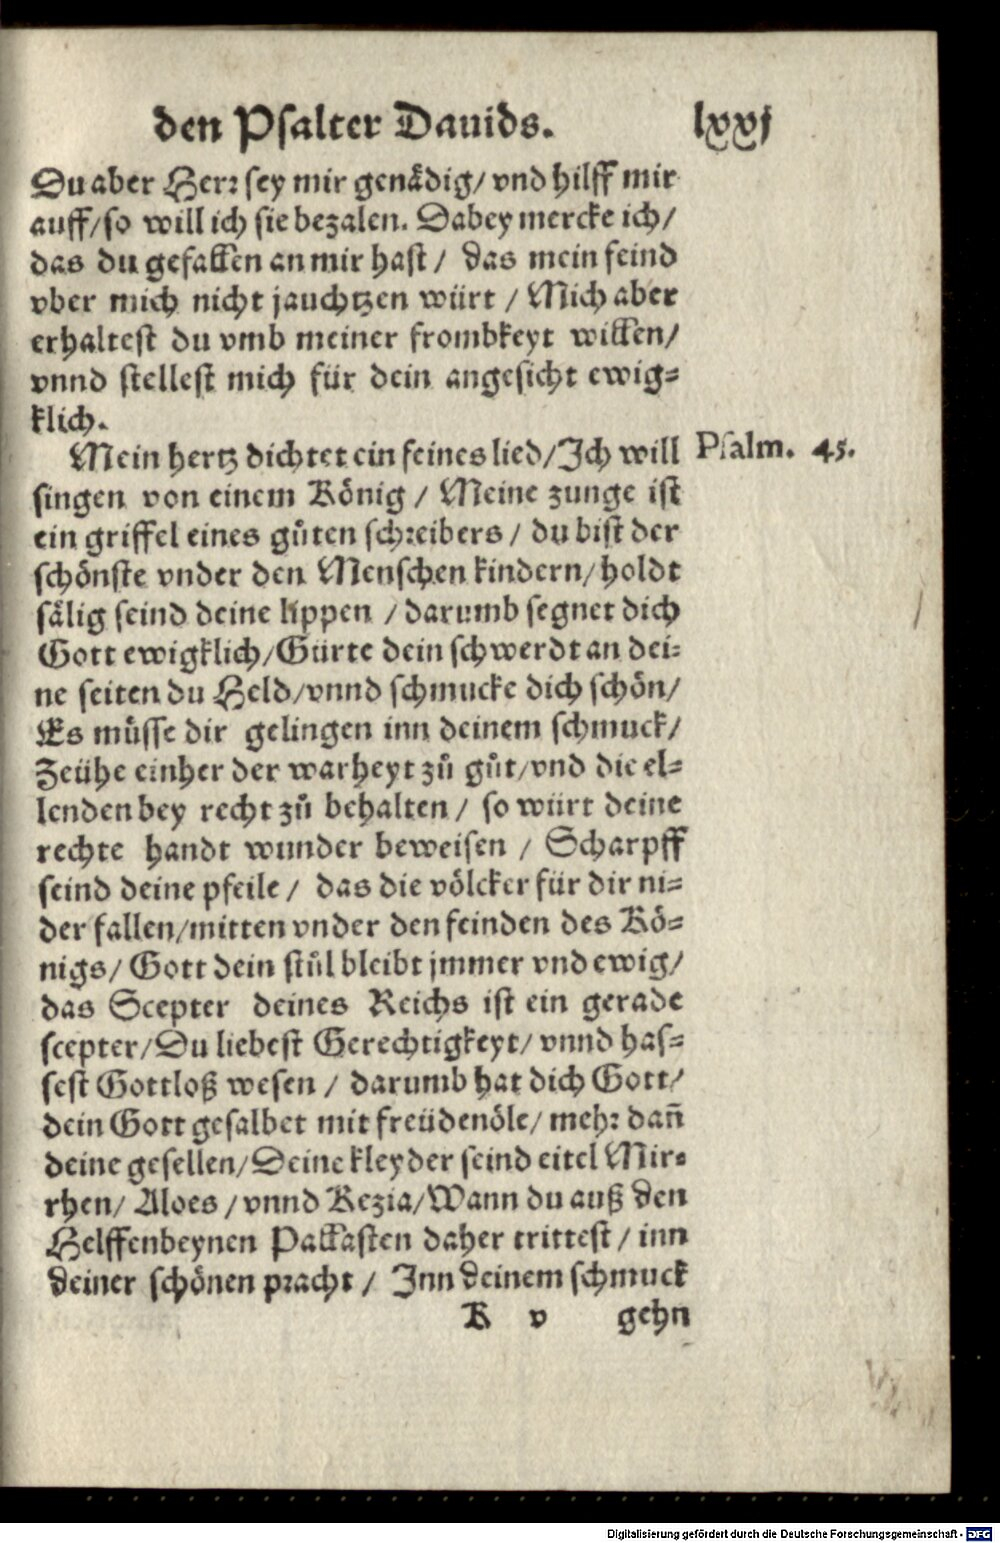 den Psalter Dauids. lxxj
Du aber Herr sey mir genådig/ vnd hilff mir
auff/so will ich sie bezalen. Dabey mercke ich/
das du gefallen an mir hast/ das mein feind
vber mich nicht jauchtzen würt / Mich aber
erhaltest du vmb meiner frombkeyt willen/
vnnd stellest mich für dein angesicht ewig=
klich.
Mein hertz dichtet ein feines lied/Ich will Psalm. 45.
singen von einem König / Meine zunge ist
ein griffel eines gůten schreibers / du bist der
schönste vnder den Menschen kindern/holdt
sålig seind deine lippen / darumb segnet dich
Gott ewigklich/Gürte dein schwerdt an dei=
ne seiten du Held/vnnd schmucke dich schön/
Es müsse dir gelingen inn deinem schmuck/
Zeühe einher der warheyt zů gůt/vnd die el=
lenden bey recht zů behalten / so würt deine
rechte handt wunder beweisen / Scharpff
seind deine pfeile / das die völcker für dir ni=
der fallen/mitten vnder den feinden des Kö=
nigs/ Gott dein stůl bleibt jmmer vnd ewig/
das Scepter deines Reichs ist ein gerade
scepter/Du liebest Gerechtigkeyt/ vnnd has=
sest Gottloß wesen / darumb hat dich Gott/
dein Gott gesalbet mit freüdenöle/ mehr dañ
deine gesellen/Deine kleyder seind eitel Mir=
rhen/ Aloes / vnnd Kezia/Wann du auß den
Helffenbeynen Pallasten daher trittest / inn
deiner schönen pracht / Inn deinem schmuck
K v gehn
Digitalisierung gefördert durch die Deutsche Forschungsgemeinschaft - DFG